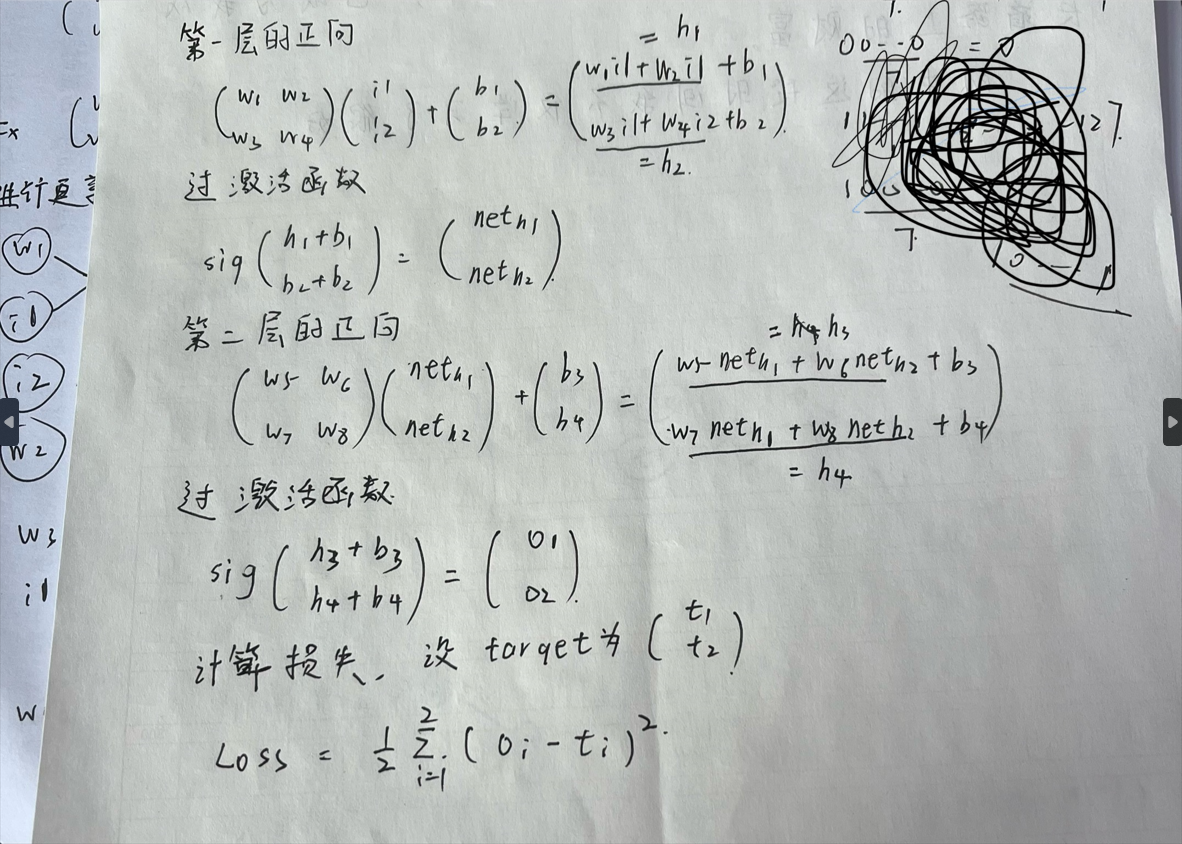 第一层的正向
= h1
(w1 w2
w3 w4)(i1
i2)+(b1
b2)=(w1i1+w2i1+b1
w3i1+w4i2+b2)
= h2.
过激活函数
sig(h1+b1
b2+b2)=(neth1
neth2)
第二层的正向
= h3
(w5 w6
w7 w8)(neth1
neth2)+(b3
b4)=(w5 neth1+w6 neth2+b3
w7 neth1+w8 neth2+b4)
= h4
过激活函数.
sig(h3+b3
h4+b4)=(o1
o2).
计算损失、设 target为(t1
t2).
Loss = 1/2 2∑i=1 (oi-ti)².
00--0 = 0
127.
7.
w1
i1
i2
w2
w3
i1
w